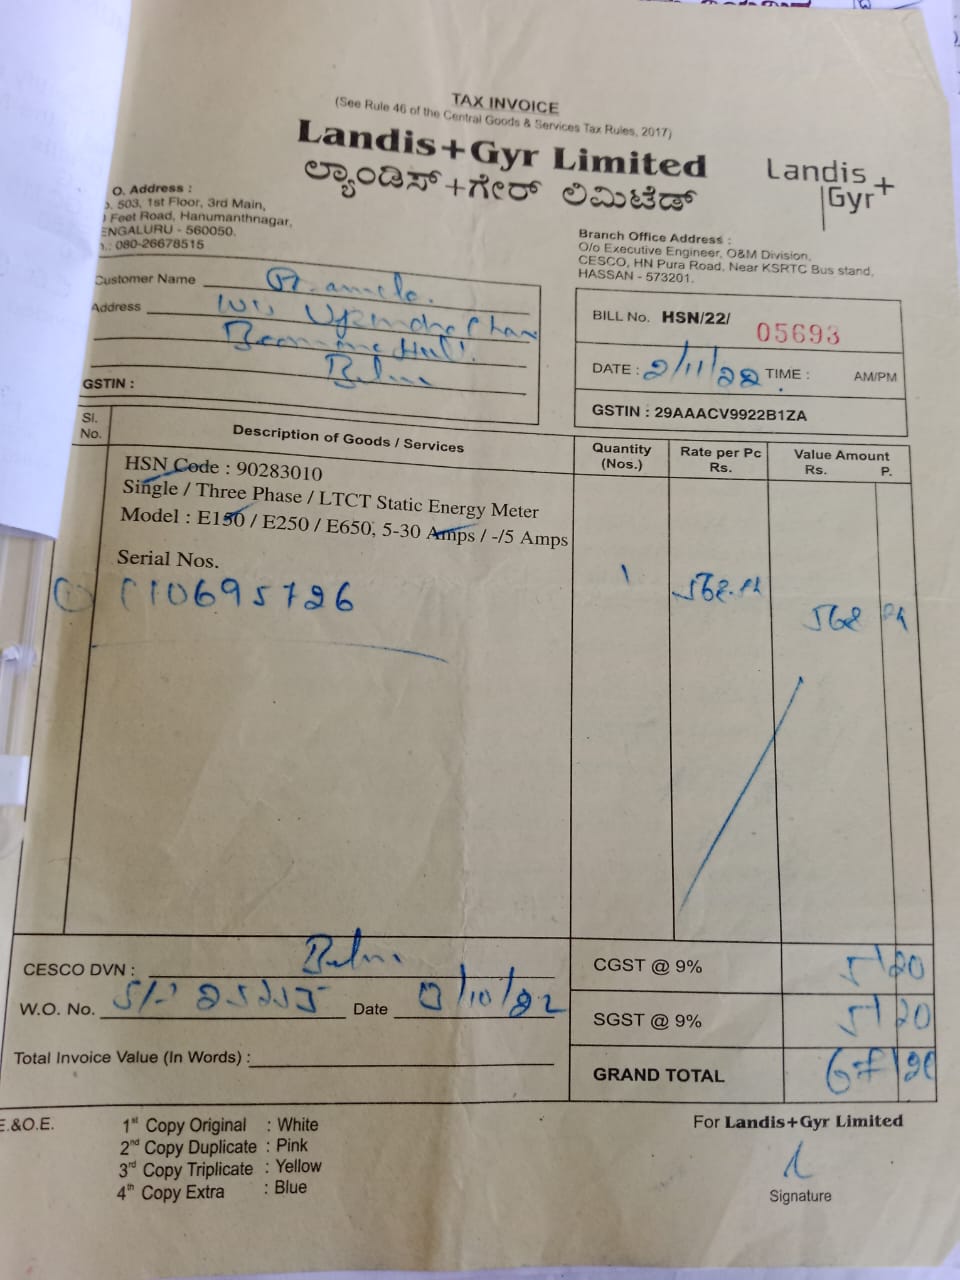 TAX INVOICE
(See Rule 46 of the Central Goods & Services Tax Rules, 2017)
Landis+Gyr Limited
ಲ್ಯಾಂಡಿಸ್+ಗೇರ್ ಲಿಮಿಟೆಡ್
Landis
Gyr+
O. Address :
503, 1st Floor, 3rd Main,
Feet Road, Hanumanthnagar,
ENGALURU - 560050.
: 080-26678515
Branch Office Address :
O/o Executive Engineer, O&M Division,
CESCO, HN Pura Road, Near KSRTC Bus stand,
HASSAN - 573201.
Customer Name
Address
GSTIN :
BILL No. HSN/22/ 05693
DATE : 2/11/22 TIME : AM/PM
GSTIN : 29AAACV9922B1ZA
Sl. No.
Description of Goods / Services
Quantity (Nos.)
Rate per Pc Rs.
Value Amount Rs. P.
HSN Code : 90283010
Single / Three Phase / LTCT Static Energy Meter
Model : E150 / E250 / E650, 5-30 Amps / -/5 Amps
Serial Nos.
1 110695726 1
568
CESCO DVN :
CGST @ 9% 51 20
W.O. No. Date
SGST @ 9% 51 20
Total Invoice Value (In Words) :
GRAND TOTAL
E.&O.E.
1st Copy Original : White
2nd Copy Duplicate : Pink
3rd Copy Triplicate : Yellow
4th Copy Extra : Blue
For Landis+Gyr Limited
Signature